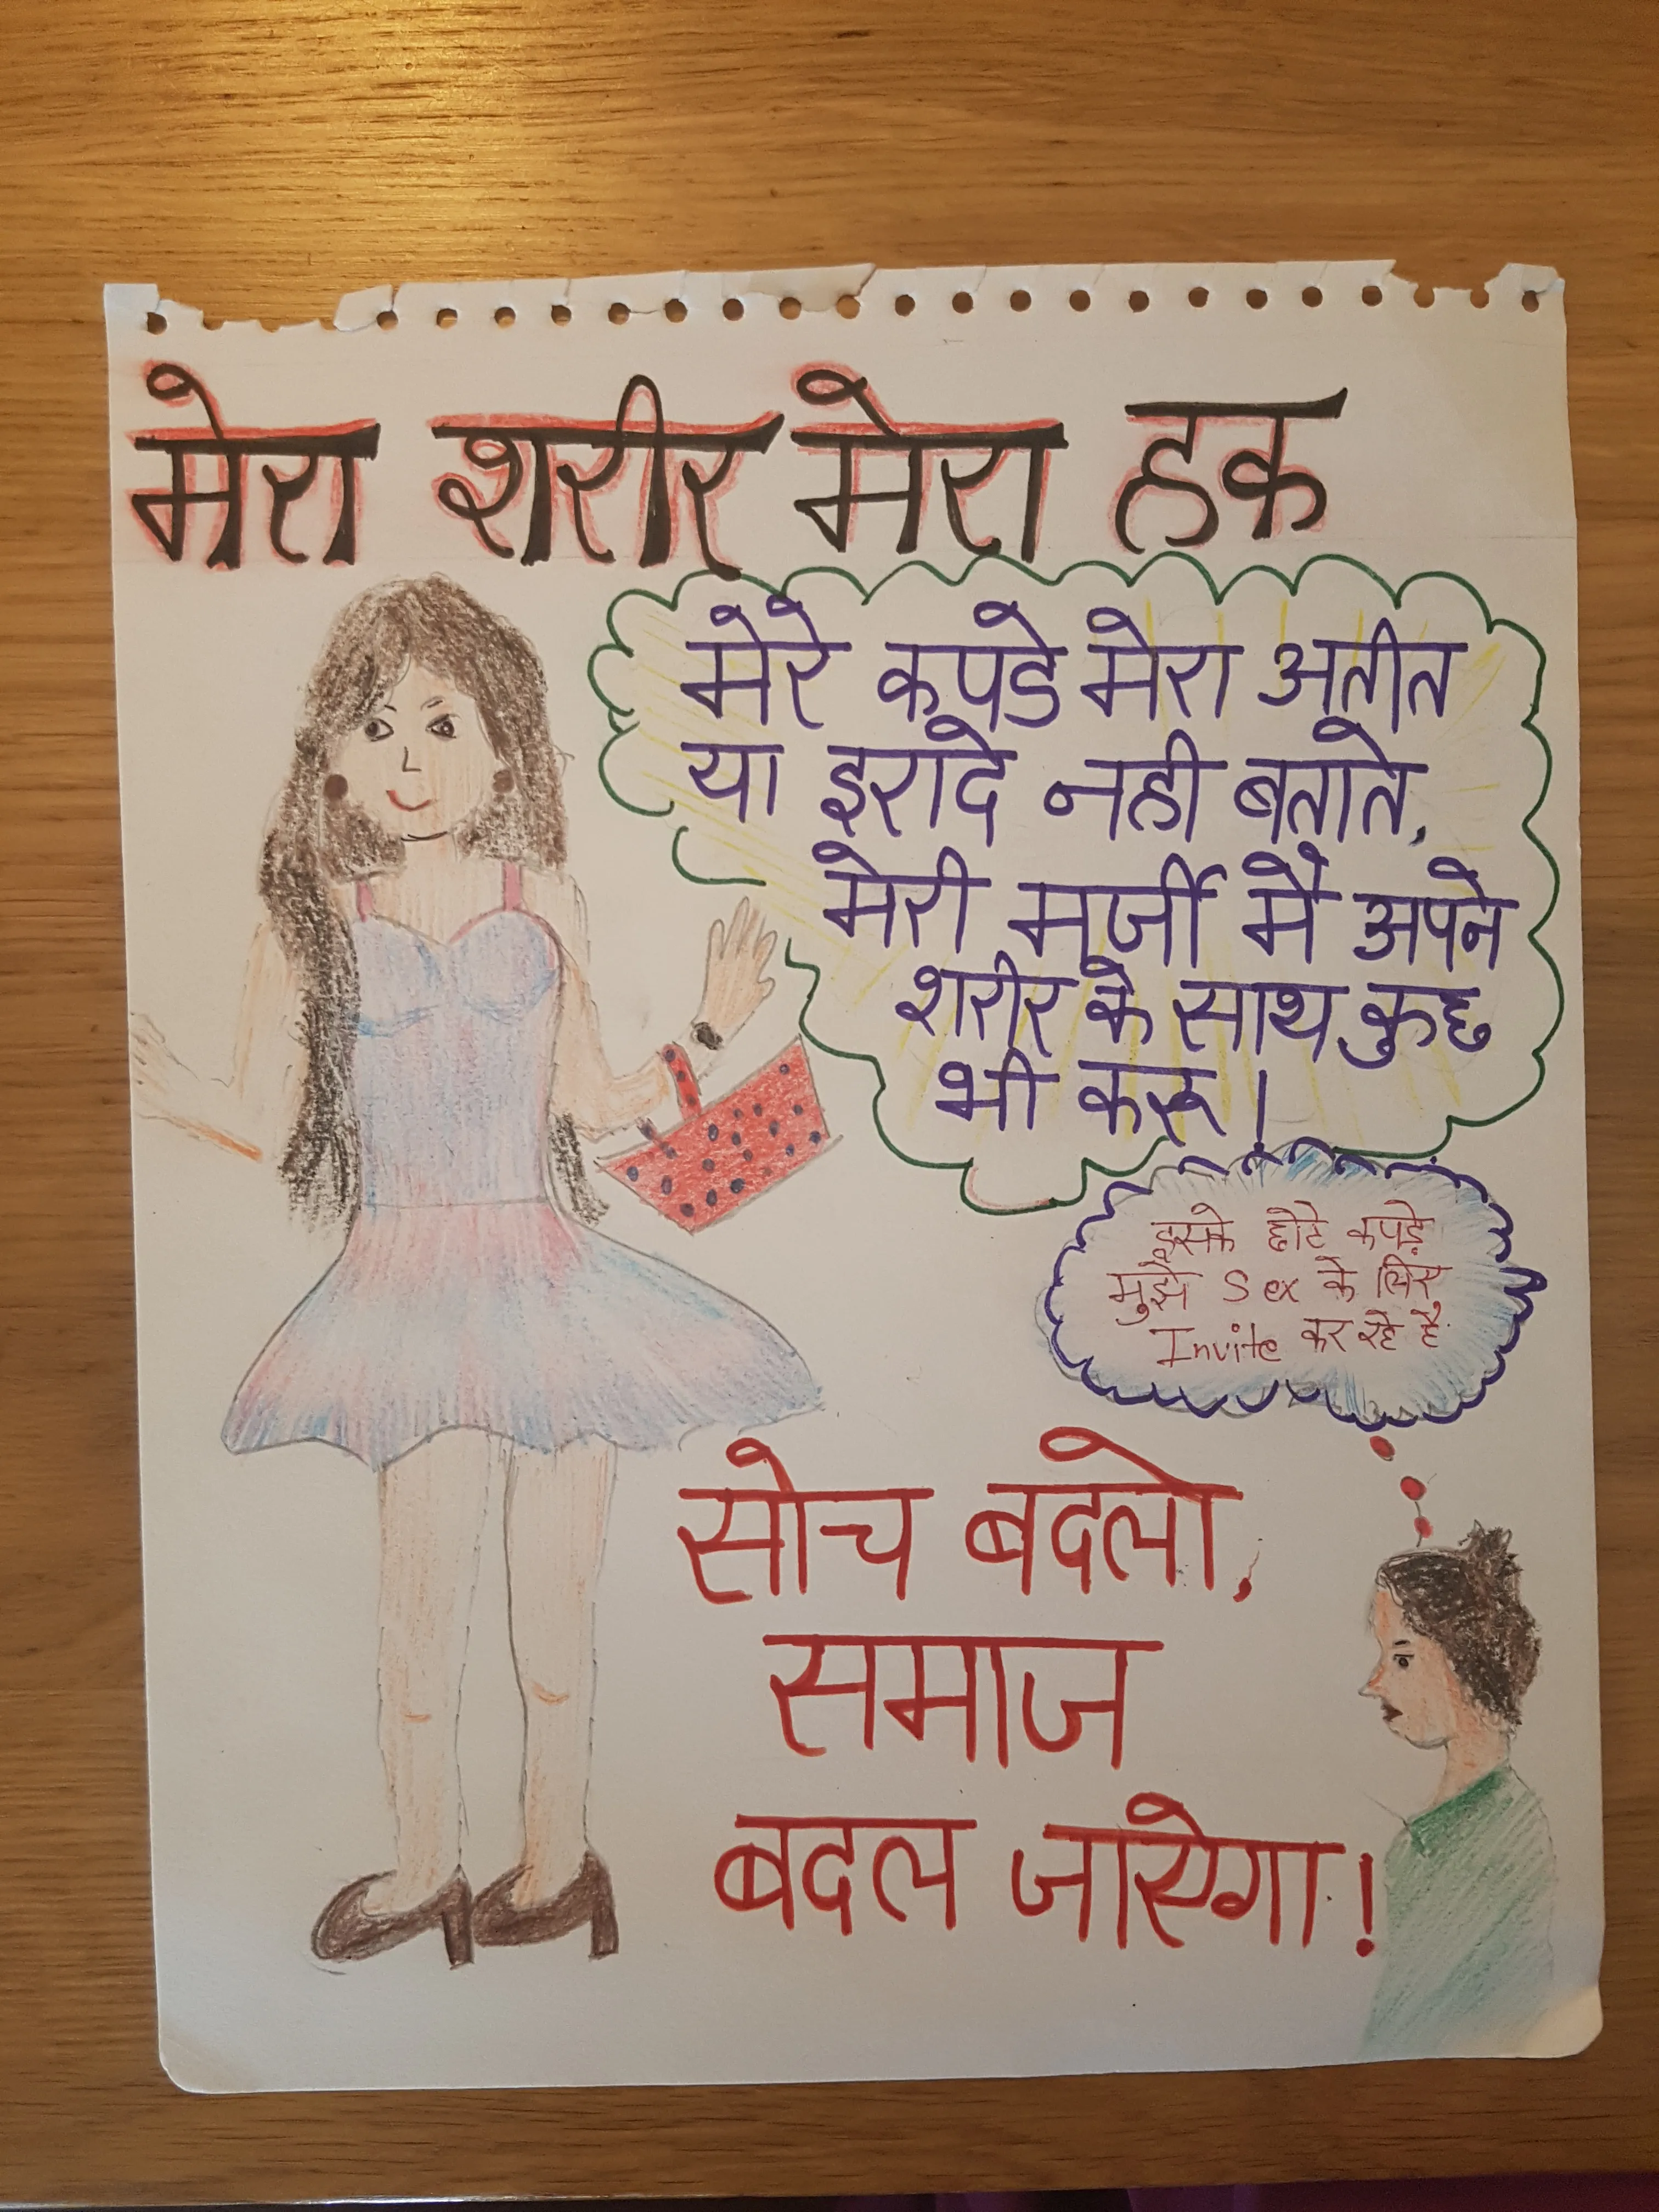 मेरा शरीर मेरा हक
मेरे कपडे मेरा अतीत
या इरादे नही बताते,
मेरी मर्जी मै अपने
शरीर के साथ कुछ
भी करू!
इसके छोटे कपड़े
मुझे Sex के लिए
Invite कर रहे है.
सोच बदलो,
समाज
बदल जाएगा!